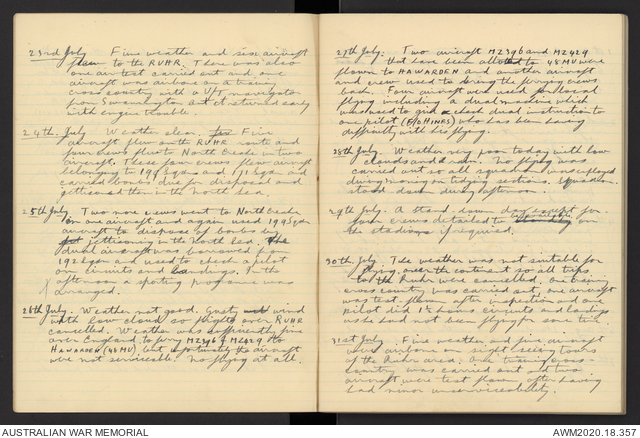 23rd July Fine weather and six aircraft
flew to the RUHR. There was also
one air test carried out and one
aircraft was airborne on a training
cross country with a U/T navigator
from Swannington but returned early
with engine trouble.
24th July Weather clear. Five
aircraft flew on the RUHR route and
four crews flew to North Creake in two
aircraft. These four crews flew aircraft
belonging to 199 Sqdn and 171 Sqdn and
carried bombs due for disposal and
jettisoned them in the North Sea.
25th July Two more crews went to North Creake
in one aircraft and again used 199 Sqdn
aircraft to dispose of bombs by
jettisoning in the North Sea. The
dual aircraft was borrowed by
192 Sqdn and used to check a pilot
on circuits and landings. In the
afternoon a sporting programme was
arranged.
26th July. Weather not good. Gusty wind
with low cloud so flights over RUHR
cancelled. Weather was sufficiently fine
over England to ferry MZ396 & MZ429 to
HAWARDEN (48 MU) but unfortunately the aircraft
were not serviceable. No flying at all.
27th July: Two aircraft MZ396 and MZ429
that have been allotted to 48 MU were
flown to HAWARDEN and another aircraft
and crew used to bring the ferrying crews
back. Four aircraft were used for local
flying including a dual machine which
was used to give a check dual instruction to
one pilot (F/O HINES) who has been having
difficulty with his flying.
28th July. Weather very poor today with low
clouds and rain. No flying was
carried out so all squadron was employed
during morning tidying sections. Squadron
stood down during afternoon.
29th July. A stand down day except for
four crews detailed to
the stadium if required.
30th July. The weather was not suitable for
flying over the continent so all trips
to the Ruhr were cancelled. One training
cross country was carried out, one aircraft
was test flown after inspection and one
pilot did 1½ hours circuits and landings
as he had not been flying for some time.
31st July. Fine weather and five aircraft
were airborne on sight seeing tours
of the Ruhr area. One training cross-
country was carried out and two
aircraft were test flown after having
had minor unserviceability.
AUSTRALIAN WAR MEMORIAL
AWM2020.18.357